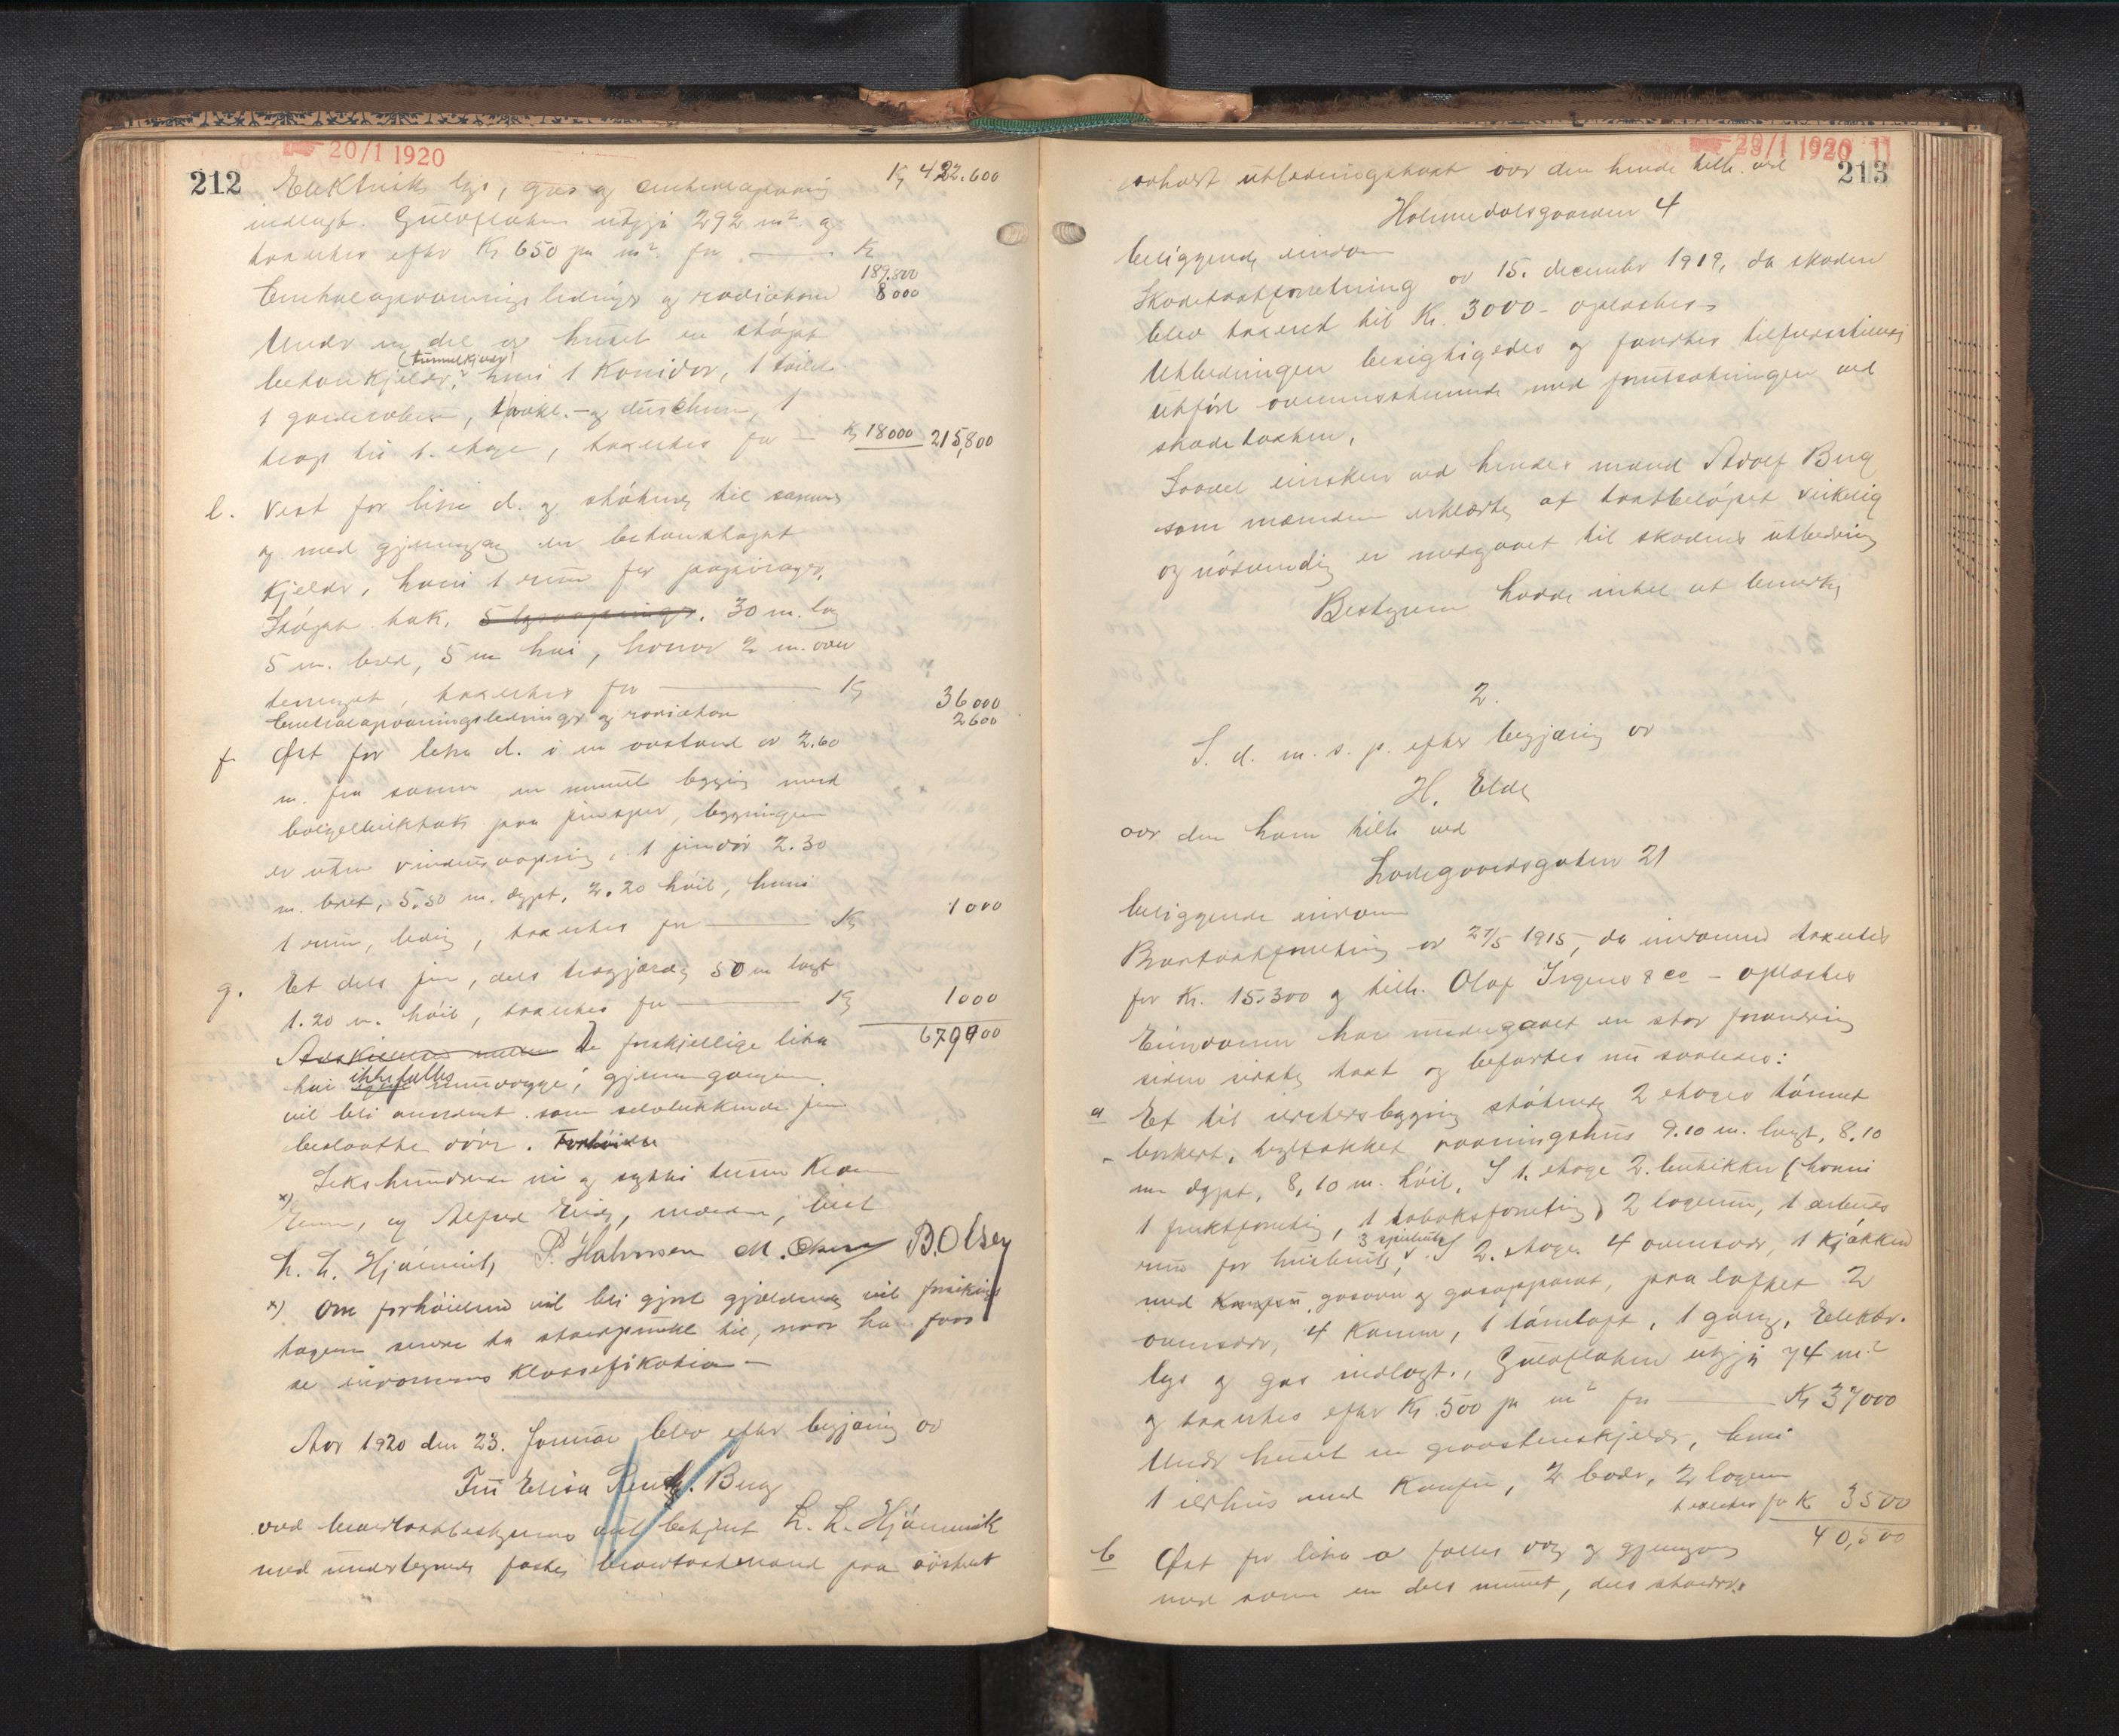 20/1 1920
212
Elektrisk lys, gas og centralopvarming Kr 422.600
indlagt. Gulvflaten utgjør 292 m² og
taxertes efter Kr 650 pr m² for — Kr
189.800
Centralopvarmings ledninger og radiatorer 8000
Under en del av huset en støpt
(tunnelkjelder)
betonkjelder, hvori 1 Koridor, 1 toilet
1 garderobe, 1 vask.- og duschrum, 1
trap til 1. etage, taxertes for — Kr 18000 215,800
e. Vest for litra d. og støtende til samme
og med gjennemgang en betonstøpt
kjelder, hvori 1 rum for papirlager,
Støpt tak. 5 lysaapninger. 30 m. lang
5 m. bred, 5 m høi, hvorav 2 m. over
terrenget, taxertes for — Kr 36000
Centralopvarmingsledninger og radiatorer 2600
f. Øst for litra d. i en avstand av 2.60
m. fra samme en muret bygning med
bølgebliktak paa jernsper, bygningen
er uten vindusaapning, 1 jerndør 2.30
m. bret, 5.50 m. dypt, 2.20 høit, hvori
1 rum, ledig, taxertes for — Kr 1000
g. Et dels jern, dels trægjærde 50 m langt
1.20 m. høit, taxertes for — Kr 1000
679400
Adskillelsen mellem De forskjellige litra
har ikke fælles murvægge, gjennemgangen
vil bli anordnet som selvlukkende jern
beslaatte døre. Forhøielse
Seks hundrede ni og sytti tusen Kroner
x)
Eieren, og Alfred Eide, mæler, hist
L. L. Hjønnevik P. Halvorsen M. Olsen B. Olsen
x) Om forhøielsen vil bli gjort gjældende vil forsikrings
tageren senere ta standpunkt til, naar han faar
se eiendommens klassefikation —
Aar 1920 den 23. Januar blev efter begjæring av
Fru Elisa Berg
ved branntakstbestyrerens aut. betjent L. L. Hjønnevik
med undertegnede faste branntakstmænd paa aastedet
29/1 1920 11
213
avholdt utbedringstakst over den hende tilh. ved
Holmedalsgaarden 4
beliggende eiendom
Skadetakstforretning av 15. december 1919, da skaden
blev taxeret til Kr. 3000 - oplæstes
Utbedringen besigtigedes og fandtes tilfredsstillende
utført overensstemmende med forutsætningen ved
skadetaksten,
Saavel eiersken ved hendes mand Adolf Berg
som mændene erklærte at takstbeløpet virkelig
og nødvendig er medgaaet til skadens utbedring
Bestyreren hadde intet at bemerke
2.
S. d. m. s. p. efter begjæring av
H. Elde
over den ham tilh. ved
Ladegaardsgaten 21
beliggende eiendom
Branntakstforretning av 27/5 1915, da eiendommen taxertes
for Kr. 15.300 og tilh. Olaf Irgens & Co - oplæstes
Eiendommen har undergaaet en stor forandring
siden sidste takst og befandtes nu saaledes:
a Et til ildstedsbygning støtende 2 etages tømret
bordklædt, teglstækket vaaningshus 9.10 m. langt, 8.10
m dypt, 8,10 m. høit, I 1. etage 2 butikker (hvori
1 fruktforretning, 1 tobaksforretning) 2 lagerrum, 1 arbeids
3 spisebuts
rum for husbruk, I 2. etage 4 ovnsværelser, 1 kjøkken
med Komfur, gasovn og gasapparat, paa loftet 2
ovnsvær, 4 kammer, 1 tømloft, 1 gang, Elektr.
lys og gas indlagt., Gulvflaten utgjør 74 m²
og taxertes efter Kr 500 pr m² for — Kr 37000
Under huset en graastenskjelder, hvori
1 ildhus med Komfur, 2 boder, 2 lagerrum
taxertes for Kr 3500
40,500
b Øst for litra a fælles væg og gjennemgang
med samme en dels muret, dels standver